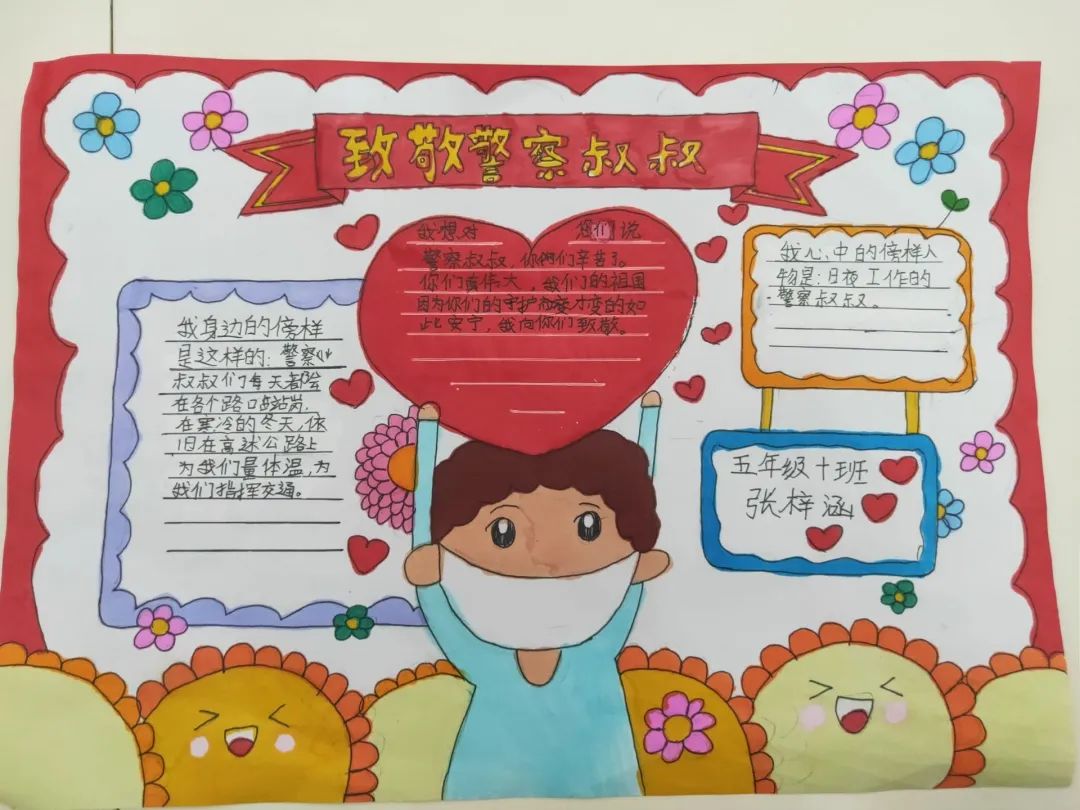 致敬警察叔叔
我想对 您们说
警察叔叔,你们们辛苦了。
你们真伟大,我们的祖国
因为你们的守护才变的如
此安宁,我向你们致敬。
我身边的傍样
是这样的:警察
叔叔们每天都会
在各个路口站岗,
在寒冷的冬天,依
旧在高速公路上
为我们量体温,为
我们指挥交通。
我心中的傍样人
物是:日夜工作的
警察叔叔。
五年级十班
张梓涵